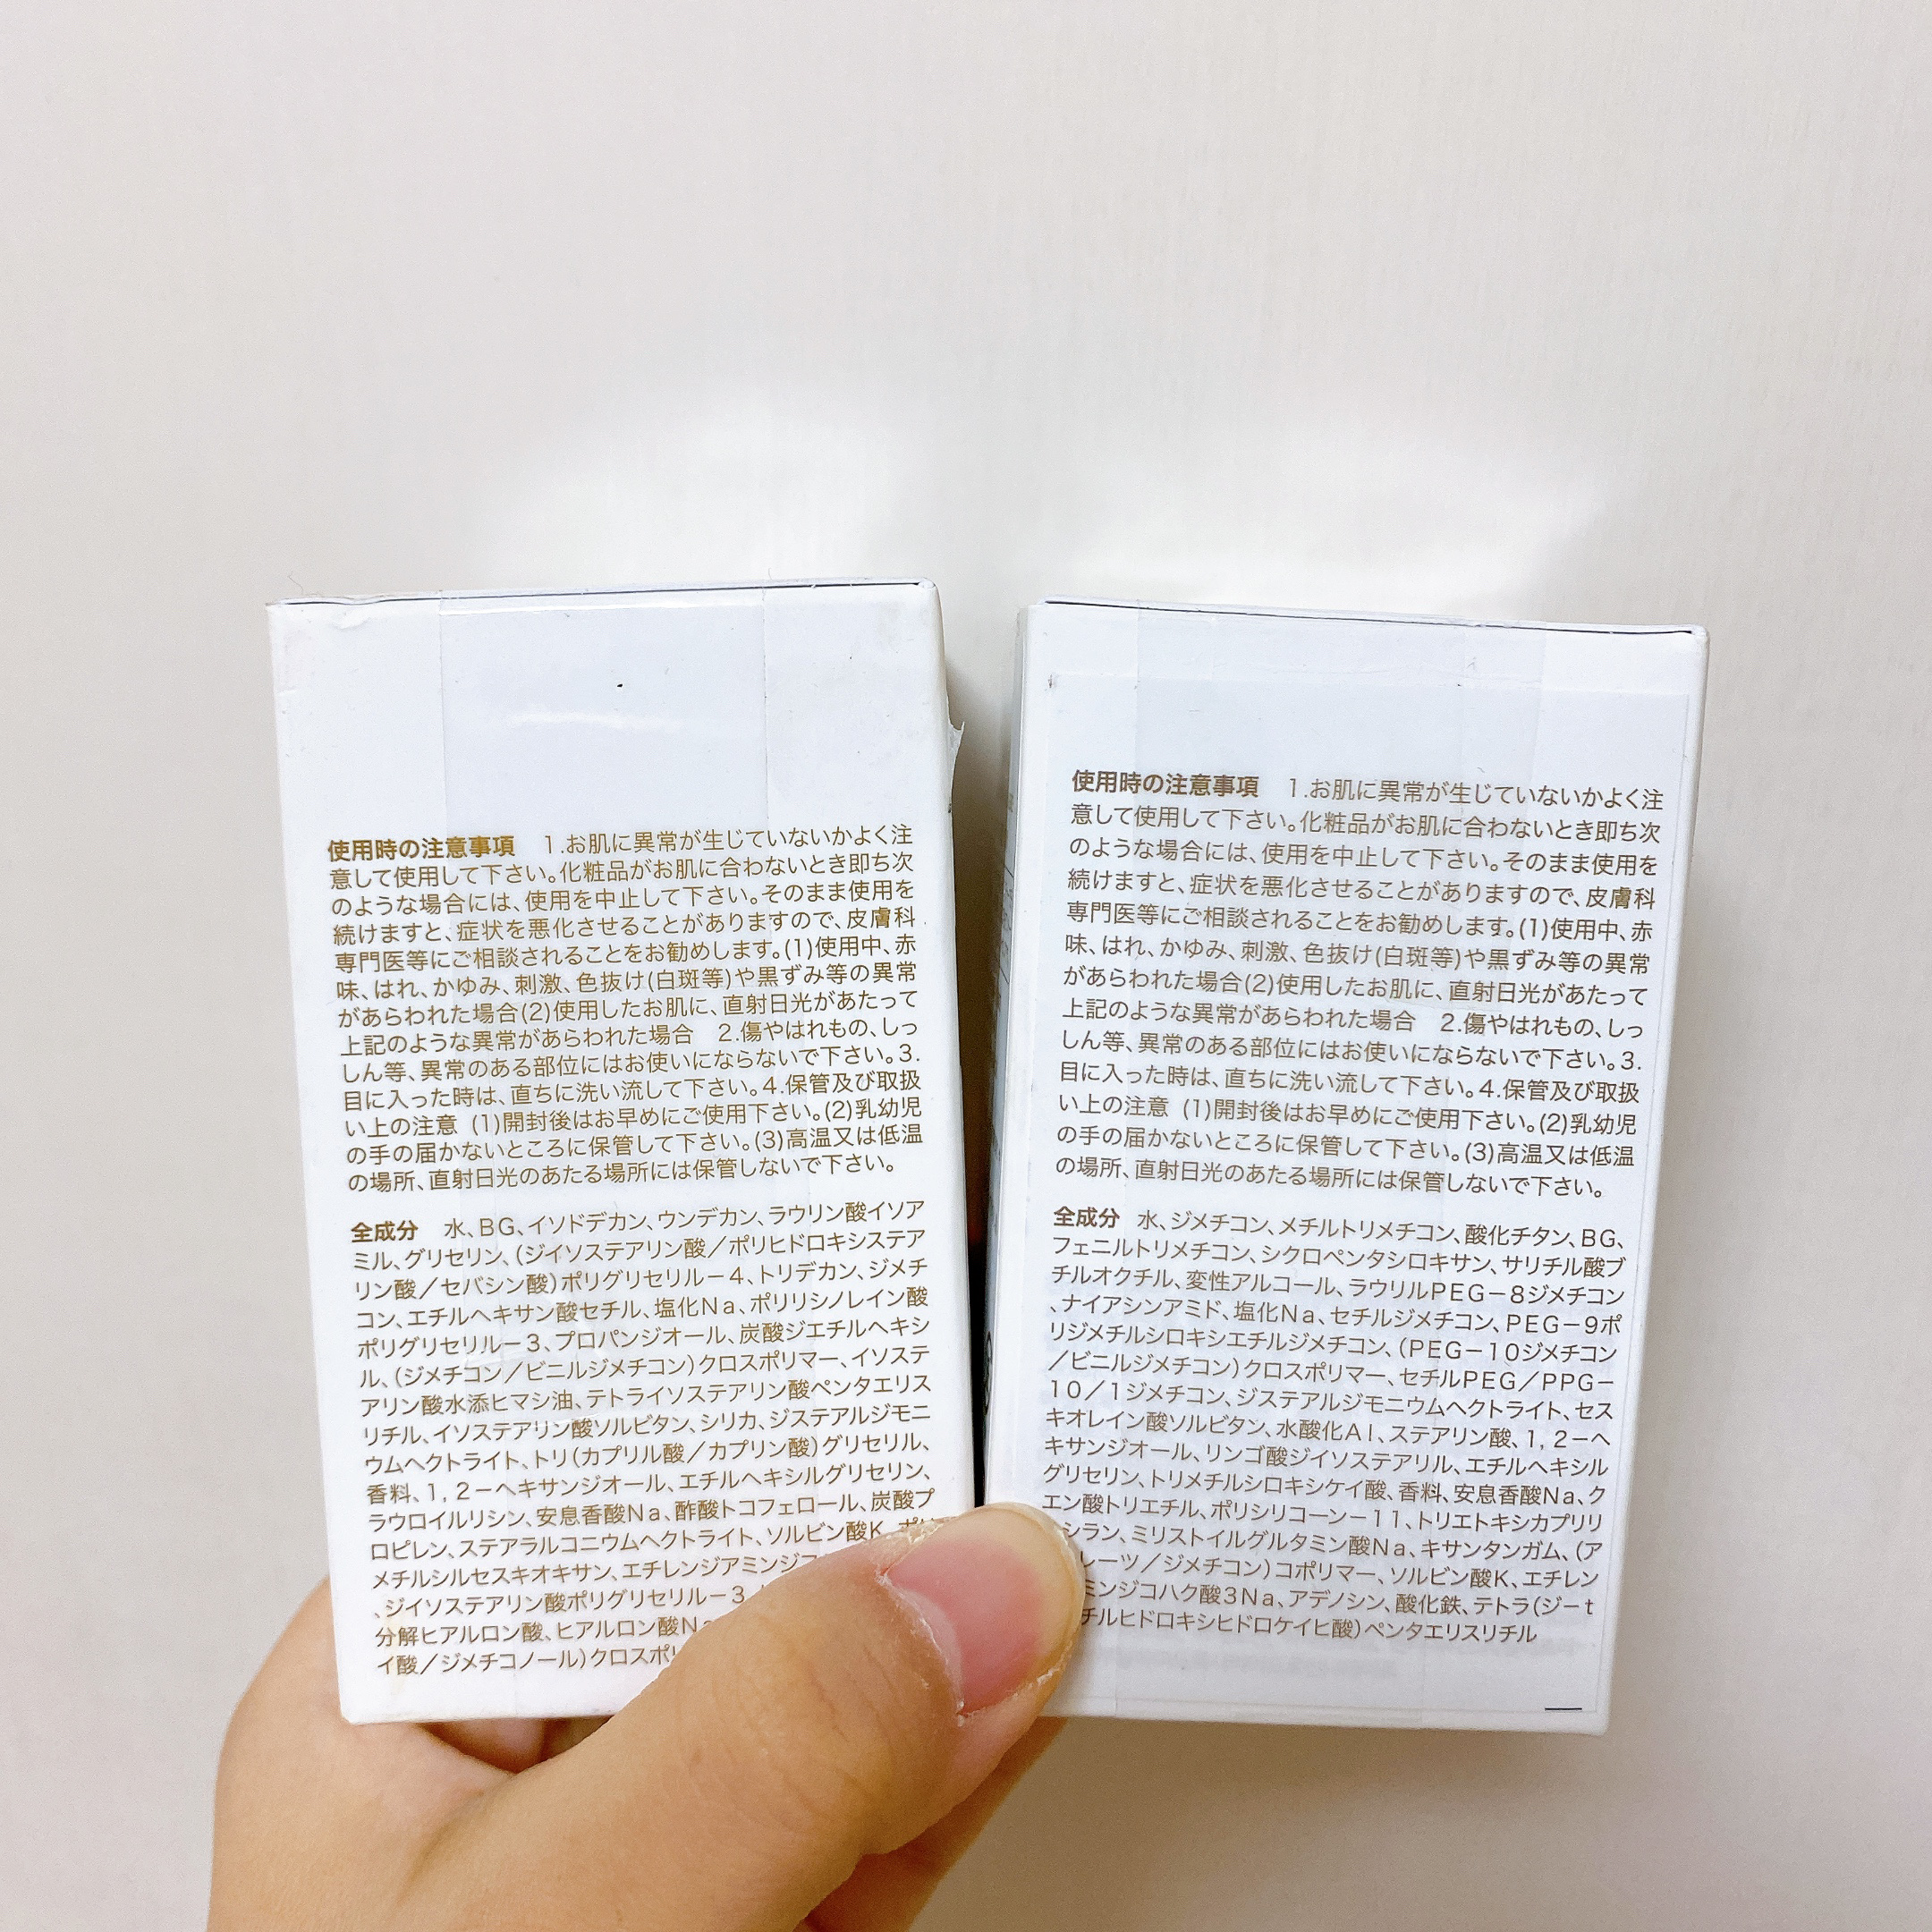 使用時の注意事項　1.お肌に異常が生じていないかよく注
意して使用して下さい。化粧品がお肌に合わないとき即ち次
のような場合には、使用を中止して下さい。そのまま使用を
続けますと、症状を悪化させることがありますので、皮膚科
専門医等にご相談されることをお勧めします。(1)使用中、赤
味、はれ、かゆみ、刺激、色抜け(白斑等)や黒ずみ等の異常
があらわれた場合(2)使用したお肌に、直射日光があたって
上記のような異常があらわれた場合　2.傷やはれもの、しっ
しん等、異常のある部位にはお使いにならないで下さい。3.
目に入った時は、直ちに洗い流して下さい。4.保管及び取扱
い上の注意 (1)開封後はお早めにご使用下さい。(2)乳幼児
の手の届かないところに保管して下さい。(3)高温又は低温
の場所、直射日光のあたる場所には保管しないで下さい。
全成分　水、BG、イソドデカン、ウンデカン、ラウリン酸イソア
ミル、グリセリン、(ジイソステアリン酸／ポリヒドロキシステア
リン酸／セバシン酸)ポリグリセリル－4、トリデカン、ジメチ
コン、エチルヘキサン酸セチル、塩化Na、ポリリシノレイン酸
ポリグリセリル－3、プロパンジオール、炭酸ジエチルヘキシ
ル、(ジメチコン／ビニルジメチコン)クロスポリマー、イソステ
アリン酸水添ヒマシ油、テトライソステアリン酸ペンタエリス
リチル、イソステアリン酸ソルビタン、シリカ、ジステアルジモニ
ウムヘクトライト、トリ(カプリル酸／カプリン酸)グリセリル、
香料、1,2－ヘキサンジオール、エチルヘキシルグリセリン、
ラウロイルリシン、安息香酸Na、酢酸トコフェロール、炭酸プ
ロピレン、ステアラルコニウムヘクトライト、ソルビン酸K、ポリ
メチルシルセスキオキサン、エチレンジアミンジコ
、ジイソステアリン酸ポリグリセリル－3、
分解ヒアルロン酸、ヒアルロン酸Na
イ酸／ジメチコノール)クロスポリ
使用時の注意事項　1.お肌に異常が生じていないかよく注
意して使用して下さい。化粧品がお肌に合わないとき即ち次
のような場合には、使用を中止して下さい。そのまま使用を
続けますと、症状を悪化させることがありますので、皮膚科
専門医等にご相談されることをお勧めします。(1)使用中、赤
味、はれ、かゆみ、刺激、色抜け(白斑等)や黒ずみ等の異常
があらわれた場合(2)使用したお肌に、直射日光があたって
上記のような異常があらわれた場合　2.傷やはれもの、しっ
しん等、異常のある部位にはお使いにならないで下さい。3.
目に入った時は、直ちに洗い流して下さい。4.保管及び取扱
い上の注意 (1)開封後はお早めにご使用下さい。(2)乳幼児
の手の届かないところに保管して下さい。(3)高温又は低温
の場所、直射日光のあたる場所には保管しないで下さい。
全成分　水、ジメチコン、メチルトリメチコン、酸化チタン、BG、
フェニルトリメチコン、シクロペンタシロキサン、サリチル酸ブ
チルオクチル、変性アルコール、ラウリルPEG－8ジメチコン
、ナイアシンアミド、塩化Na、セチルジメチコン、PEG－9ポ
リジメチルシロキシエチルジメチコン、(PEG－10ジメチコン
／ビニルジメチコン)クロスポリマー、セチルPEG／PPG－
10／1ジメチコン、ジステアルジモニウムヘクトライト、セス
キオレイン酸ソルビタン、水酸化Al、ステアリン酸、1,2－ヘ
キサンジオール、リンゴ酸ジイソステアリル、エチルヘキシル
グリセリン、トリメチルシロキシケイ酸、香料、安息香酸Na、ク
エン酸トリエチル、ポリシリコーン－11、トリエトキシカプリリ
シラン、ミリストイルグルタミン酸Na、キサンタンガム、(ア
レーツ／ジメチコン)コポリマー、ソルビン酸K、エチレン
ミンジコハク酸3Na、アデノシン、酸化鉄、テトラ(ジ－t
チルヒドロキシヒドロケイヒ酸)ペンタエリスリチル